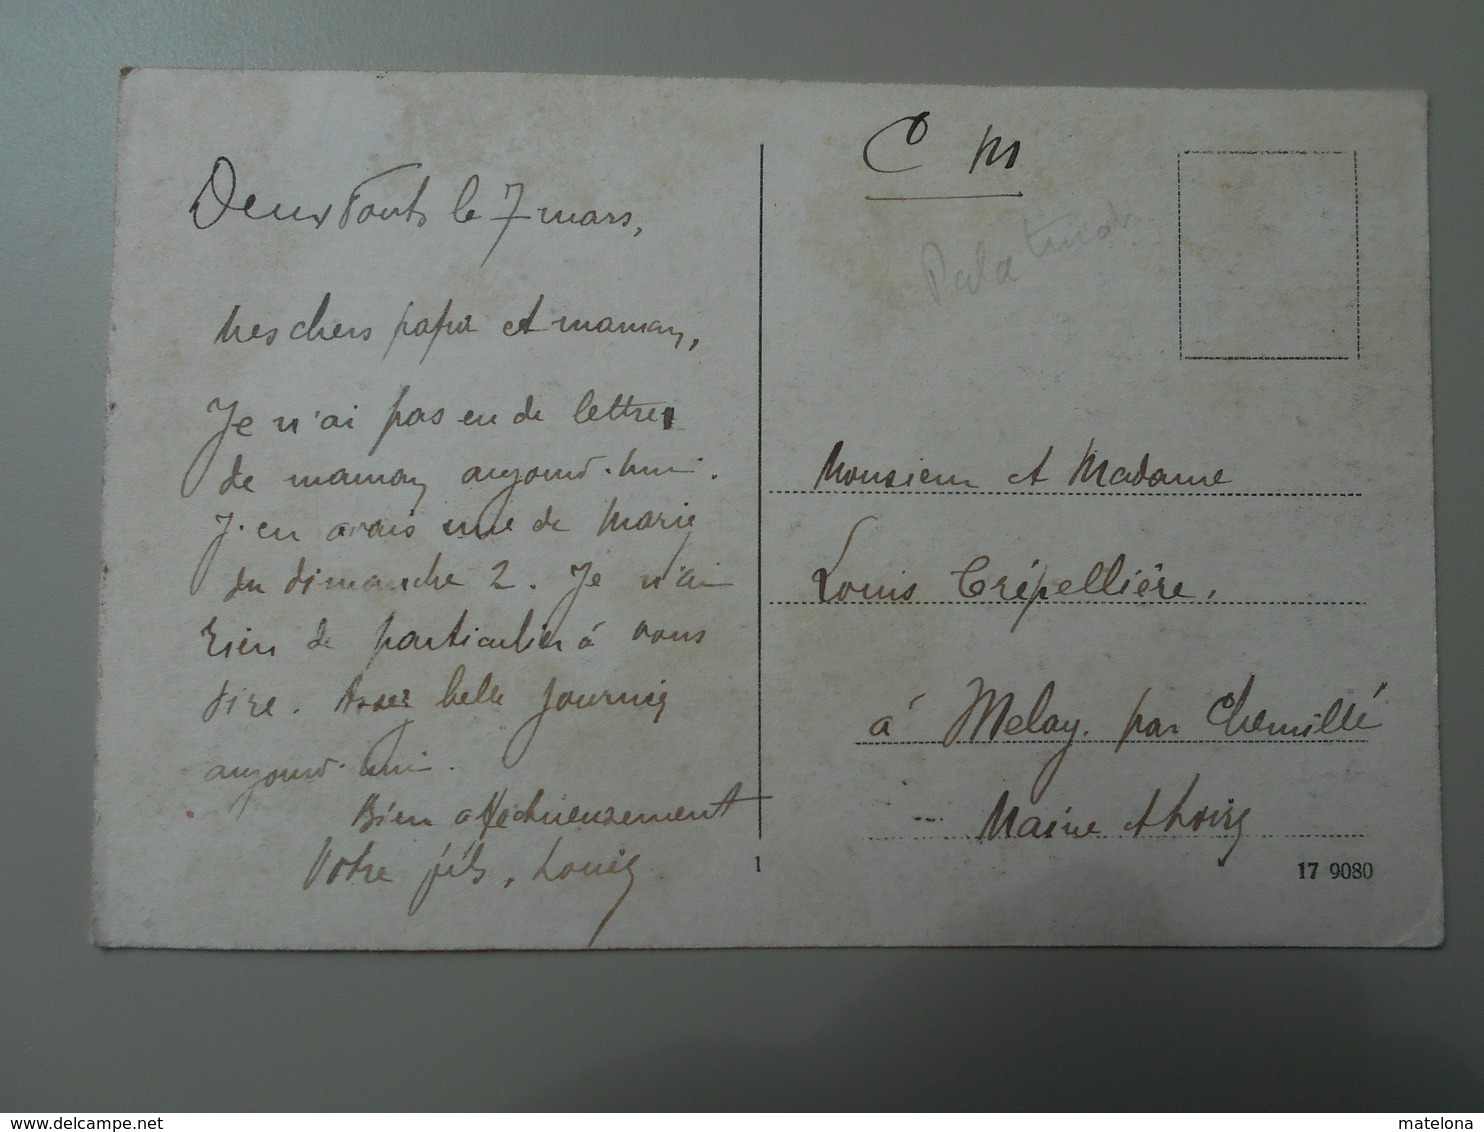 Deux Ponts le 7 mars,
Mes chers papa et maman,
Je n'ai pas eu de lettre
de maman aujourd'hui.
J'en avais une de Marie
du dimanche 2. Je n'ai
rien de particulier à vous
dire. Assez belle journée
aujourd'hui.
Bien affectueusement
Votre fils, Louis
C M
Monsieur et Madame
Louis Crépellière,
à Melay par Chemillé
Maine et Loire
1
17 9080
matelona